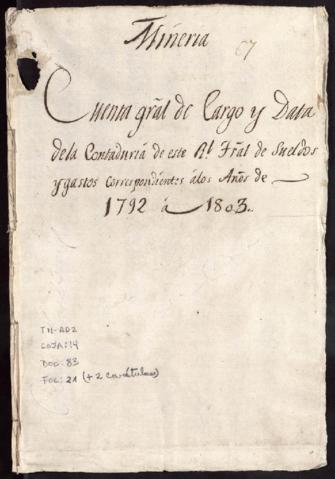 Mineria
67
Cuenta grãl de Cargo y Data
dela Contaduria de este Rl. Trãl de Sueldos
y gastos correspondientes álos Años de
1792 á 1803.
TM-AD2
CAJA: 14
DOC: 83
FOL: 21 (+ 2 carátulas)